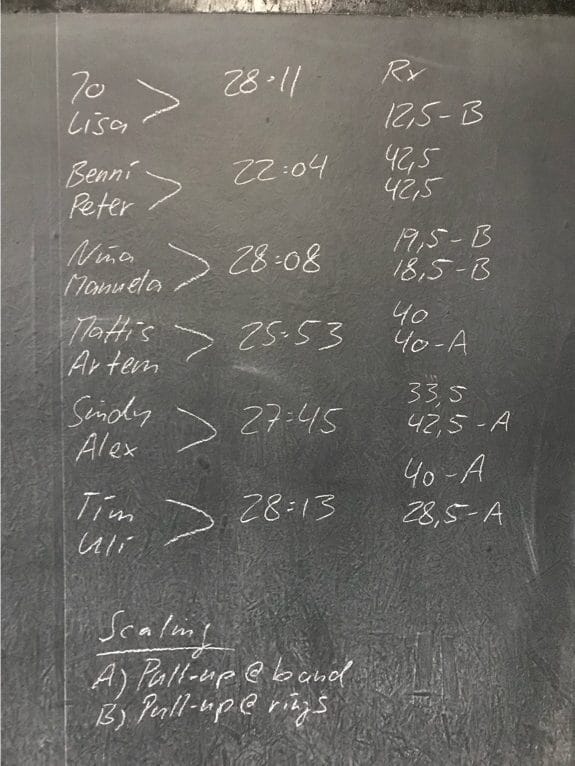 Jo 28:11 Rx
Lisa 12,5 - B
Benni 22:04 42,5
Peter 42,5
Nina 28:08 19,5 - B
Manuela 18,5 - B
Mattis 25:53 40
Artem 40 - A
Sindy 27:45 33,5
Alex 42,5 - A
Tim 28:13 40 - A
Uli 28,5 - A
Scaling
A) Pull-up @ band
B) Pull-up @ rings